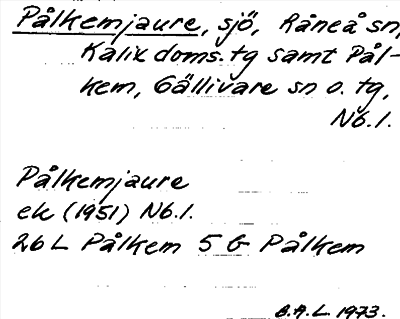 Pålkemjaure, sjö, Råneå sn,
Kalix doms.tg samt Pål-
kem, Gällivare sn o. tg,
Nb.l.
Pålkemjaure
ek (1951) Nb.l.
26L Pålkem 5 G Pålkem
B.A.L. 1973.